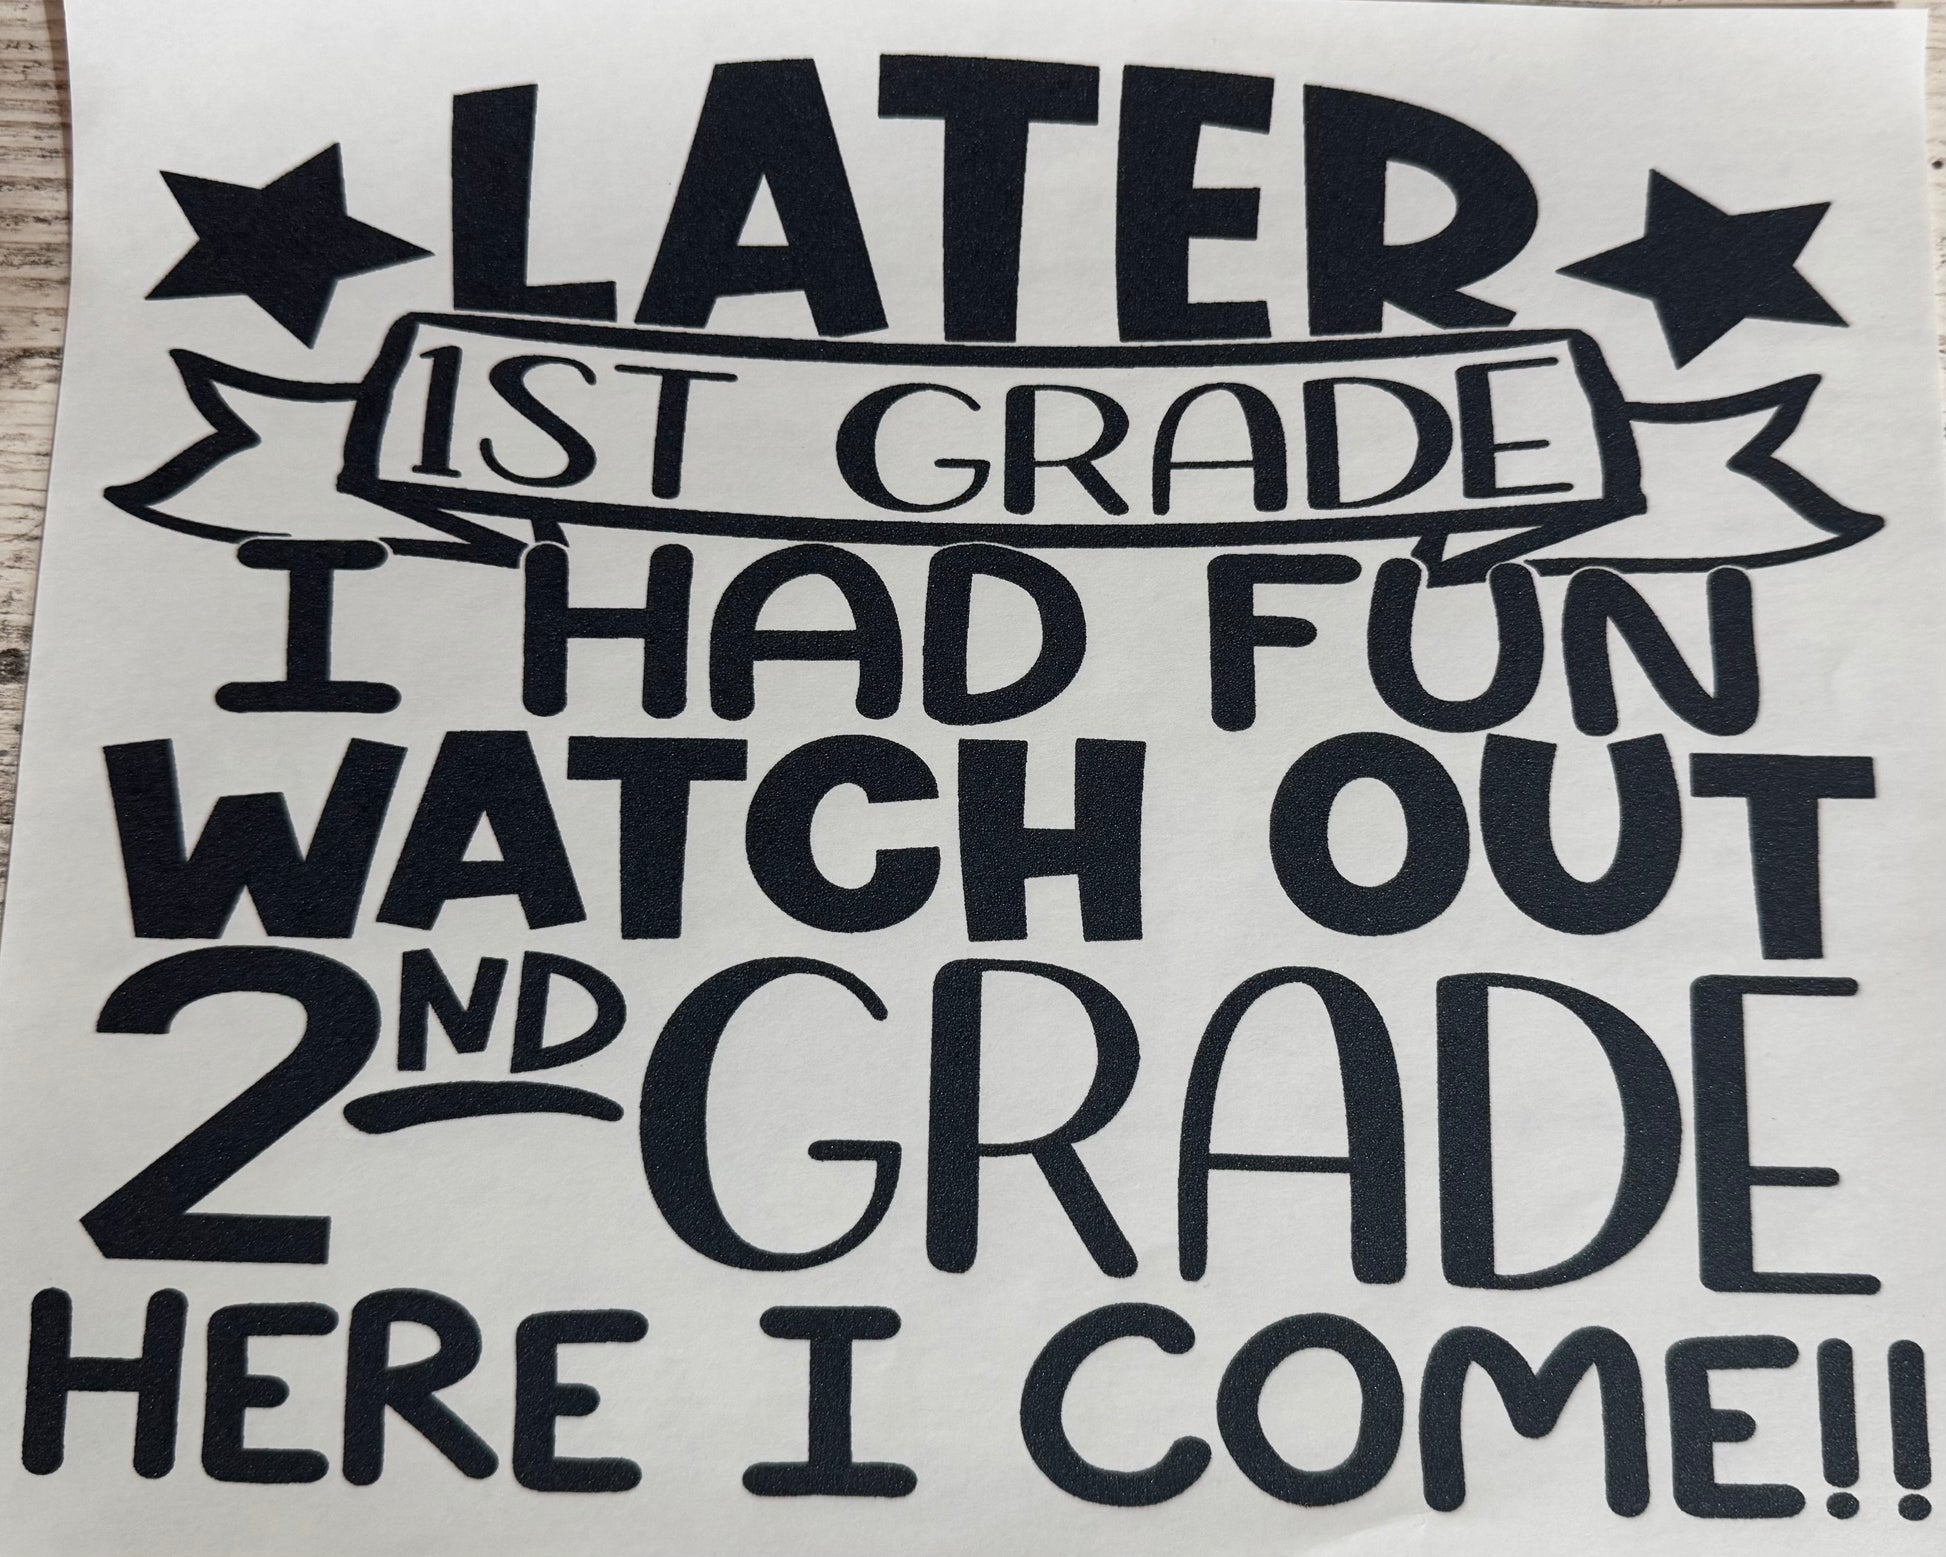 LATER
1ST GRADE
I HAD FUN
WATCH OUT
2ND GRADE
HERE I COME!!